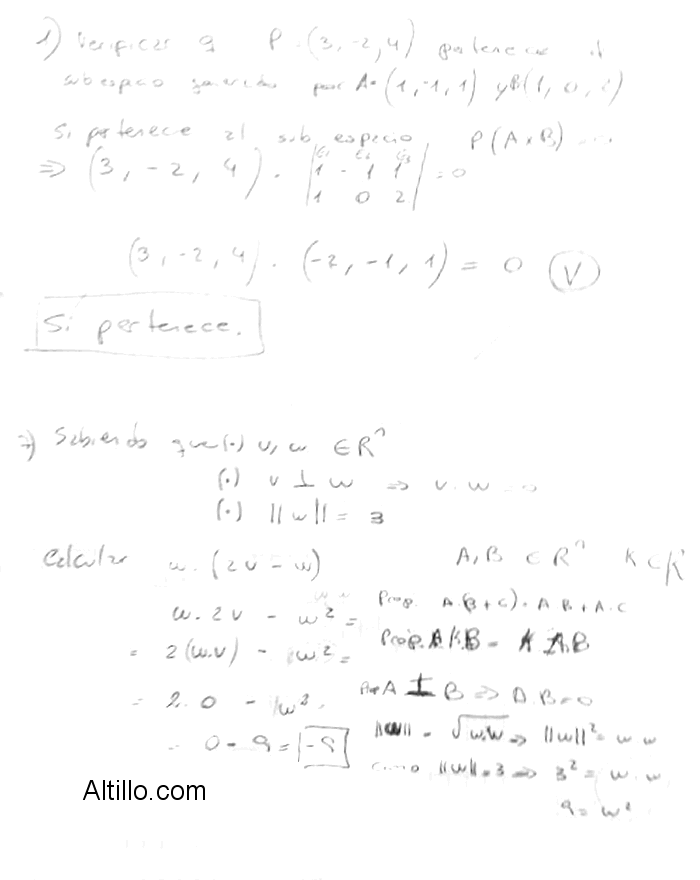 1) Verificar q P = (3, -2, 4) pertenece al
subespacio generado por A = (1, -1, 1) y B(1, 0, 2)
Si pertenece al sub espacio P(A x B) =
=> (3, -2, 4) . | E1 E2 E3 | = 0
1 -1 1
1 0 2
(3, -2, 4) . (-2, -1, 1) = 0 (V)
Si pertenece.
7) Sabiendo que (.) v, w ∈ R^n
(.) v ⊥ w => v . w = 0
(.) ||w|| = 3
Calcular w . (2v - w) A, B ∈ R^n K ∈ R
w . 2v - w² = Prop. A.(B + C) = A B + A . C
= 2(w.v) - w² = Prop. A K B = K A.B
= 2. 0 - w² A ⊥ B => A . B = 0
= 0 - 9 = -9 ||w|| = √w.w => ||w||² = w w
como ||w|| = 3 => 3² = w . w
9 = w²
Altillo.com